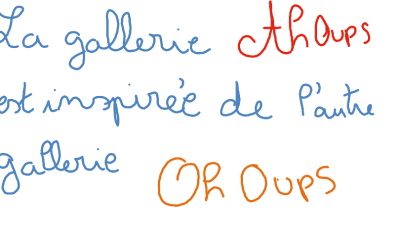 La gallerie Ah Oups
est inspirée de l'autre
gallerie Oh Oups